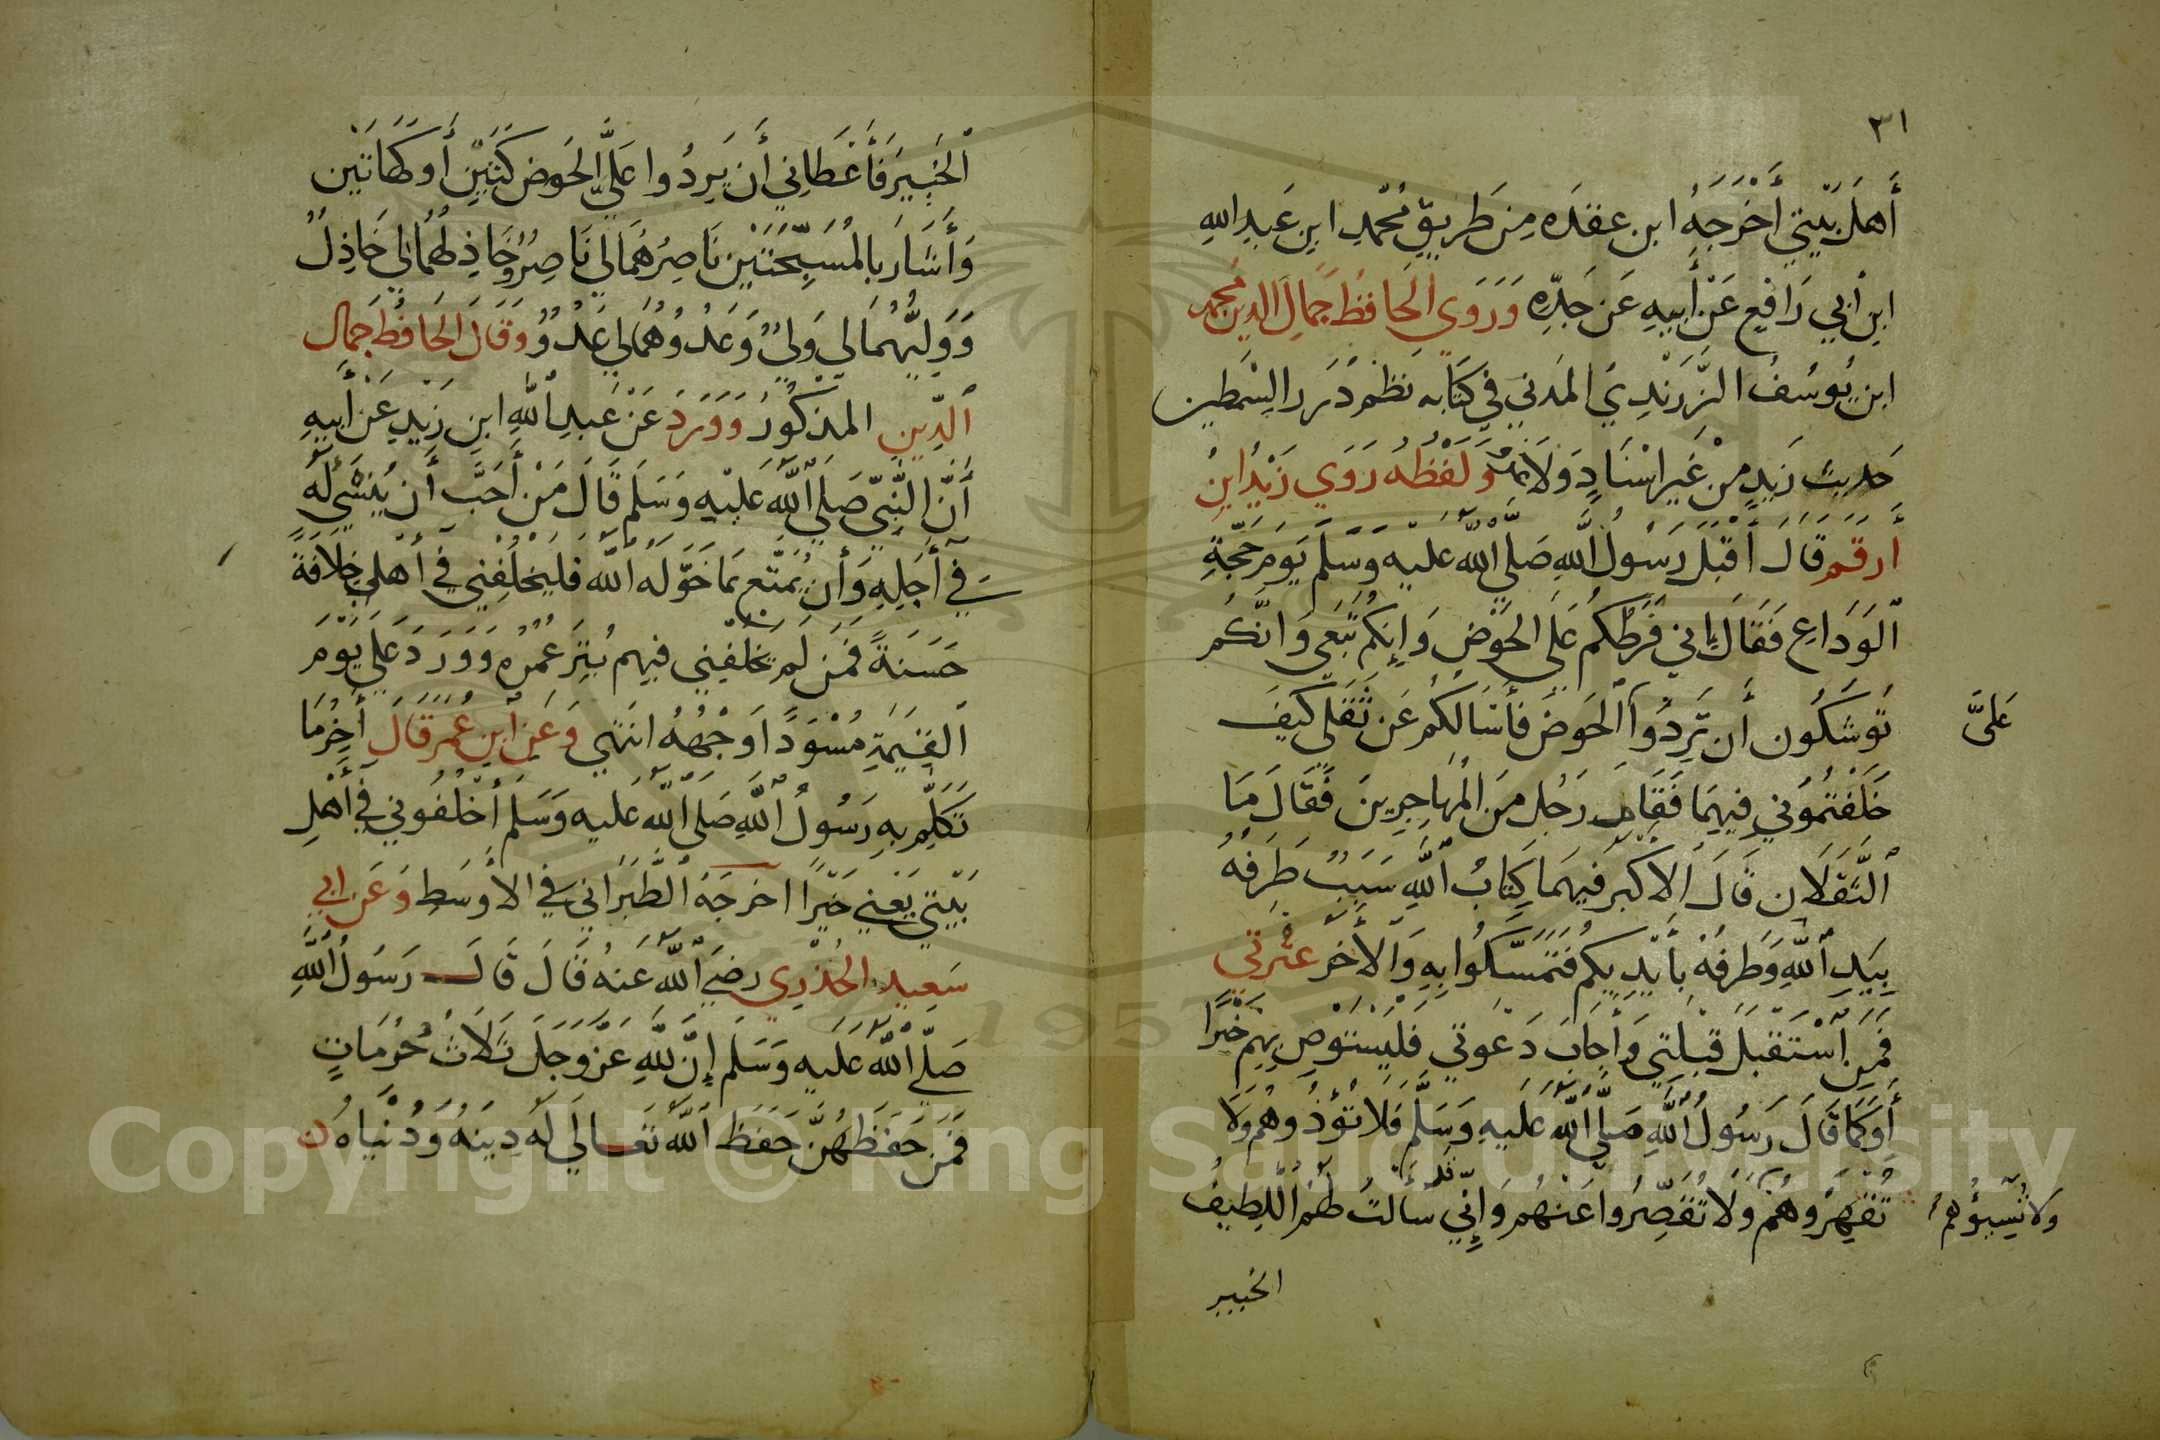 ٣١
أَهلَ بَيْتِي أَخْرَجَهُ ابن عقدَه مِنَ طَرِيقِ مُحَّمدِ ابنِ عَبدِ الله
ابنِ أَبي رَافِعٍ عَنْ أَبِيهِ عَن جَدِّهِ وَرَوَي الحَافظَ جَمَالِ الدين محمد
ابن يُوسُفُ الزَّرَنْدِيَ المَدنيَ فيِ كتَابه نظم دُرَر السِّمطين
حَديثَ زَيدٍ مِنْ غَيِر اسْنَادٍ وَلَفْظُهُ رَوَي زَيْدُ ابنُ
أَرقم قَالَ أَقْبَلَ رَسُولُ اللهِ صَلَّي اللّه عَليه وَسَلَّم يَومَ حَجَّةِ
الوَدَاعِ فَقَالَ إِني فَرَطُكُم عَلَى الحَوْضِ وَإِنكُم تَبَعِي وَانَّكُم
تُوشكُون أَن تَرِدُوا الحَوضَ فَأَسَالكُم عَن ثَقَلَي كَيفَ
عَلَيَّ
خَلَفْتُموُني فِيهِمَا فَقَامَ رَجُل مِنَ المُهَاجِرِينَ فَقَالَ مَا
الثَّقَلَان قَالَ الاكبَر فيهمَا كِتَابُ اللهِ سَبَبُ طَرفُهُ
بِيَدِ اللّهِ وَطَرفُهُ بِأَيْدِيكُم فَتَمَسَّكُوا بِهِ وَالأَخَر عتْرتي
فَمَنِ اسْتَقبَلَ قِبلَتِي وَأَجَابَ دَعوَتي فَليَستَوْصِ بِهِم خَيْرًا
أَوكَمَا قَالَ رَسُولُ اللّهِ صَلَّي اللّه عَلَيهِ وَسَلَّم فَلَا تُؤذُوهُم وَلَا
تُقهِرُوهُمْ وَلَا تُقَصِّرُوا عَنهُم وَإِنِّي قد سَألتُ لهُمُ اللَّطِيفُ
الخبير
الخَبِيرَ فَأَعْطَانِي أَن يَرِدُوا عَلَيَّ الحَوضَ كَتَيْنِ أَوكَهَاتَيْن
وَأَشَارَ بالمُسَبِّحَتَيْنِ نَاصِرُهُمَا لي نَاصِرٌ وَخَاذِلهُمَا لي خَاذِلٌ
وَوَلِيُّهمَا لي وَليٌّ وَعَدُوُهُمَا لي عَدُوٌّ وَقَالَ الحَافظ جَمال
الدِّينِ المذكُورُ وَوَرَدَ عَنْ عَبدِ اللّهِ ابنِ زَيدٍ عَن أَبيهِ
أَنَّ النَّبِيّ صَلَي اللّه عَلَيهِ وَسَلَم قَالَ مَنْ أَحَبَّ أَن يُنْسَئَ لَه
في أَجَلِهِ وَأَن يُمَتَّع بمَا خَوَّلَه اللّه فَليَخلُفنِي فِي أَهْلي خِلَافَةً
حَسَنَةً فَمن لَم يَخلفنِي فيهم بُتِرَ عُمُرُه وَوَرَدَ عَليَ يَوْمَ
القِيَمَةِ مُسْوَدًّا وَجْهُهُ انتَهي وَعَنِ ابنِ عُمَر قَالَ أَخِرُ مَا
تَكَلَّم بِهِ رَسُولُ اللّهِ صَلَى اللّه عَليه وَسَلَم أُخْلُفُوني فِي أَهْلِ
بَيْتِي يَعْنِي خَيْرًا اخرجَهُ الطَّبَرَاني فِي الاَوْسَطِ وَعَن ابي
سَعِيدٍ الخُدْرِي رضيَ اللّه عَنهُ قَالَ قَالَ رَسُولُ اللّهِ
صَلّي اللّه عَلَيهِ وَسَلَم إِنَّ للّهِ عَزَّوَجَلَ ثَلَاثَ حُرُمَاتٍ
فَمَن حَفظَهُنَّ حَفظَ اللّه تعَالَي لَه دِينَهُ وَدُنْيَاهُ